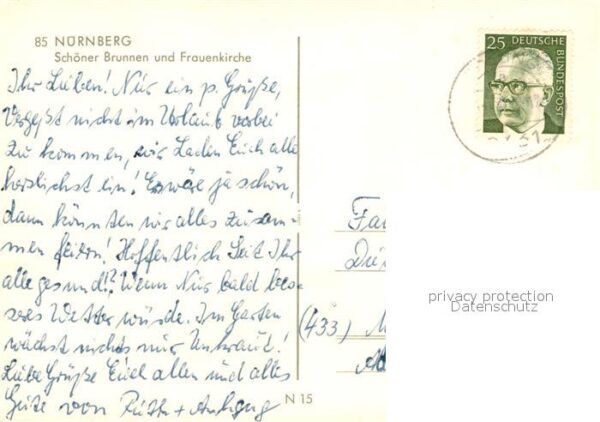 85 NÜRNBERG
Schöner Brunnen und Frauenkirche
Ihr Lieben! Nur ein p. Grüße,
Vergeßt nicht im Urlaub vorbei
zu kommen, wir Laden Euch alle
herzlichst ein! Es wäe ja schön,
dann könnten wir alles zusam-
men feiern! Hoffentlich Seit Ihr
alle gesund!? Wenn Nur bald bes-
seres Wetter würde. Im Garten
wächst nichts nur Unkraut!
Liebe Grüße Euch allen und alles
Gute von Ruth + Anhang
N 15
25 DEUTSCHE
BUNDESPOST
Fa
(433) M
privacy protection
Datenschutz